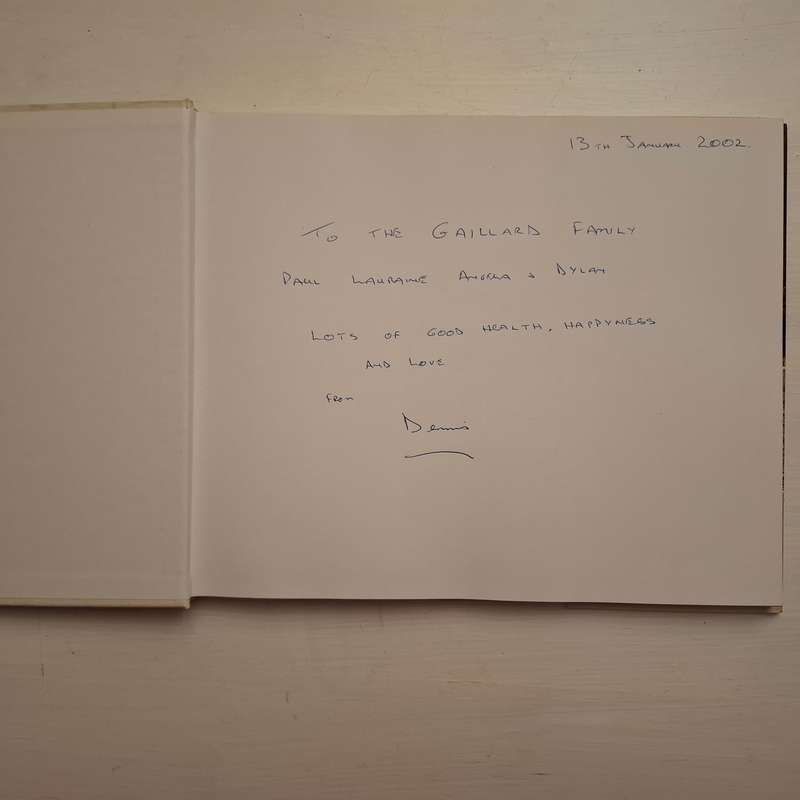 13TH JANUARY. 2002.
TO THE GAILLARD FAMILY
PAUL LAURAINE ANGELA & DYLAN
LOTS OF GOOD HEALTH, HAPPYNESS
AND LOVE
FROM
Dennis